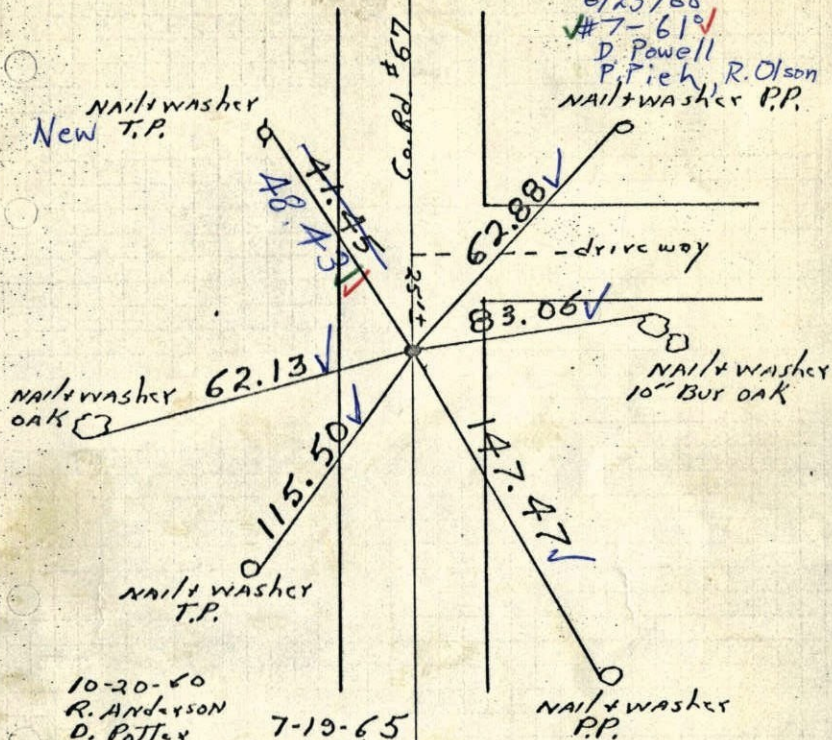 #7-61°
D. Powell
P. Pieh, R. Olson
Co. Rd #67
Nail + washer
New T.P.
Nail + washer P.P.
41.45
48.43
62.88
driveway
25'±
83.06
Nail + washer
10" Bur Oak
62.13
Nail + washer
Oak
115.50
147.47
Nail + washer
T.P.
Nail + washer
P.P.
10-20-60
R. Anderson
D. Potter
7-19-65